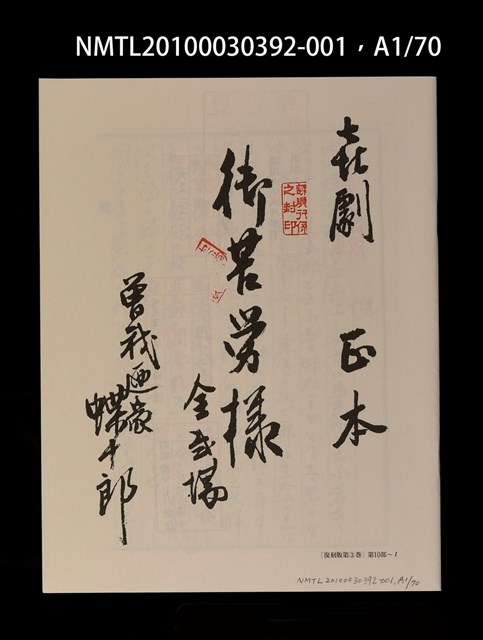 NMTL20100030392-001，A1/70
喜劇 正本
御苦労様
全弐場
曽我廼家
蝶十郎
之封印
[復刻版第③巻] 第10部～1
NMTL20100030392-001, A1/70